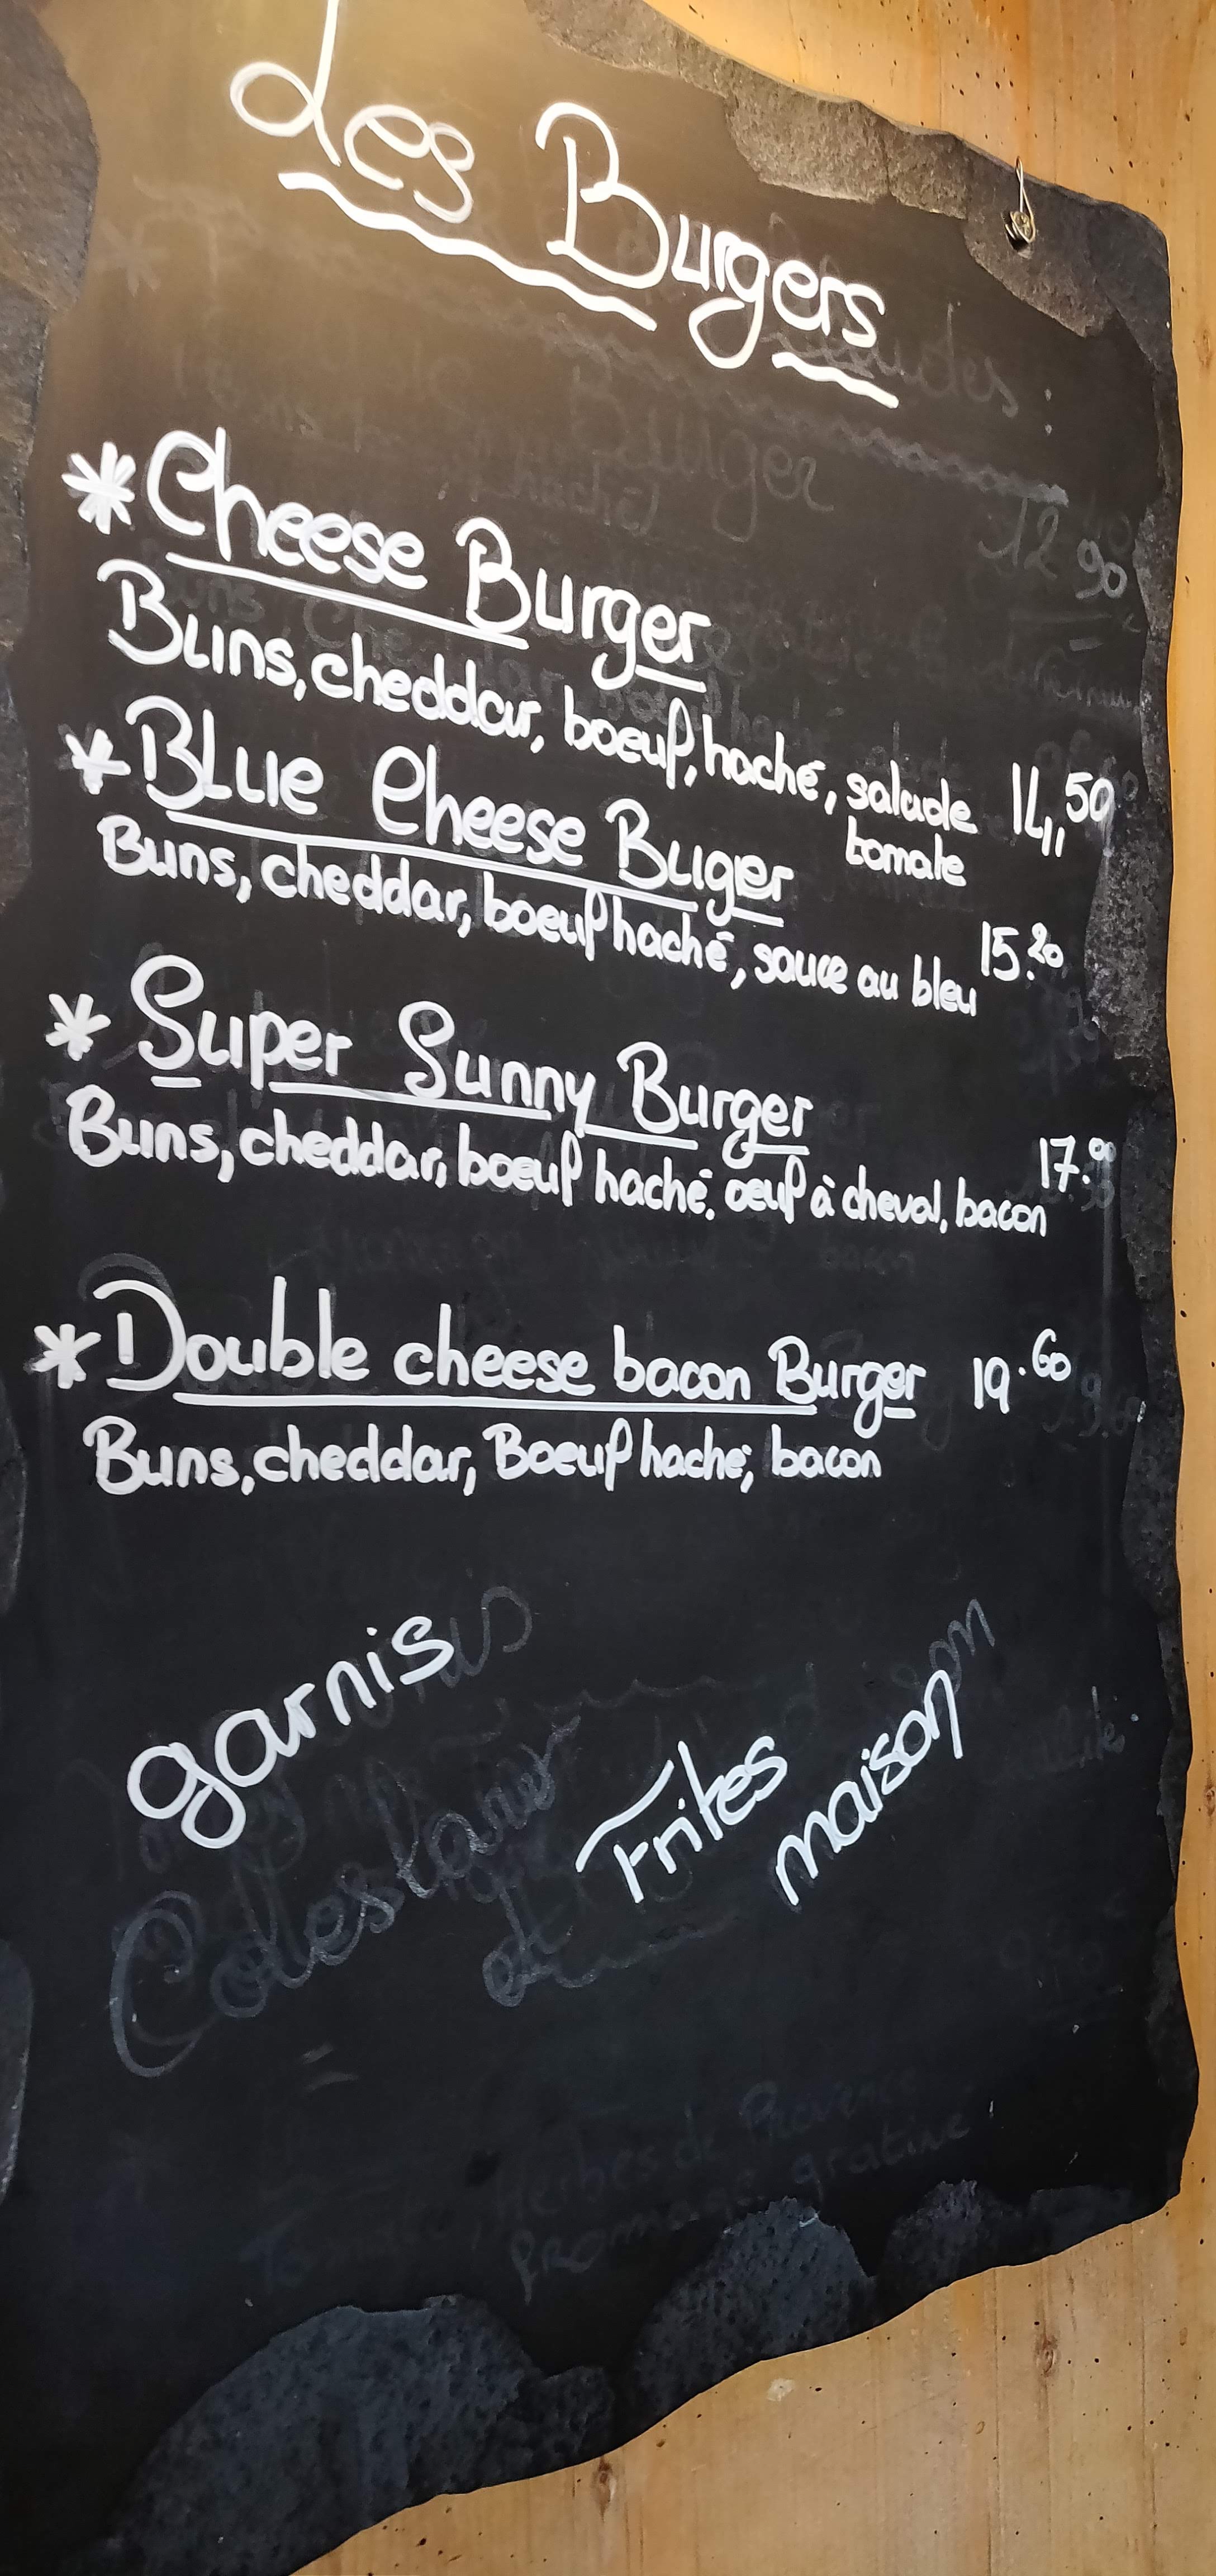 Les Burgers
* Cheese Burger
Buns, cheddar, boeuf, haché, salade 14,50
tomate
* BLue Cheese Buger
Buns, cheddar, boeuf haché, sauce au bleu 15.20
* Super Sunny Burger
Buns, cheddar, boeuf haché, oeuf à cheval, bacon 17.00
* Double cheese bacon Burger 19.60
Buns, cheddar, Boeuf haché, bacon
garnis
Frites
maison